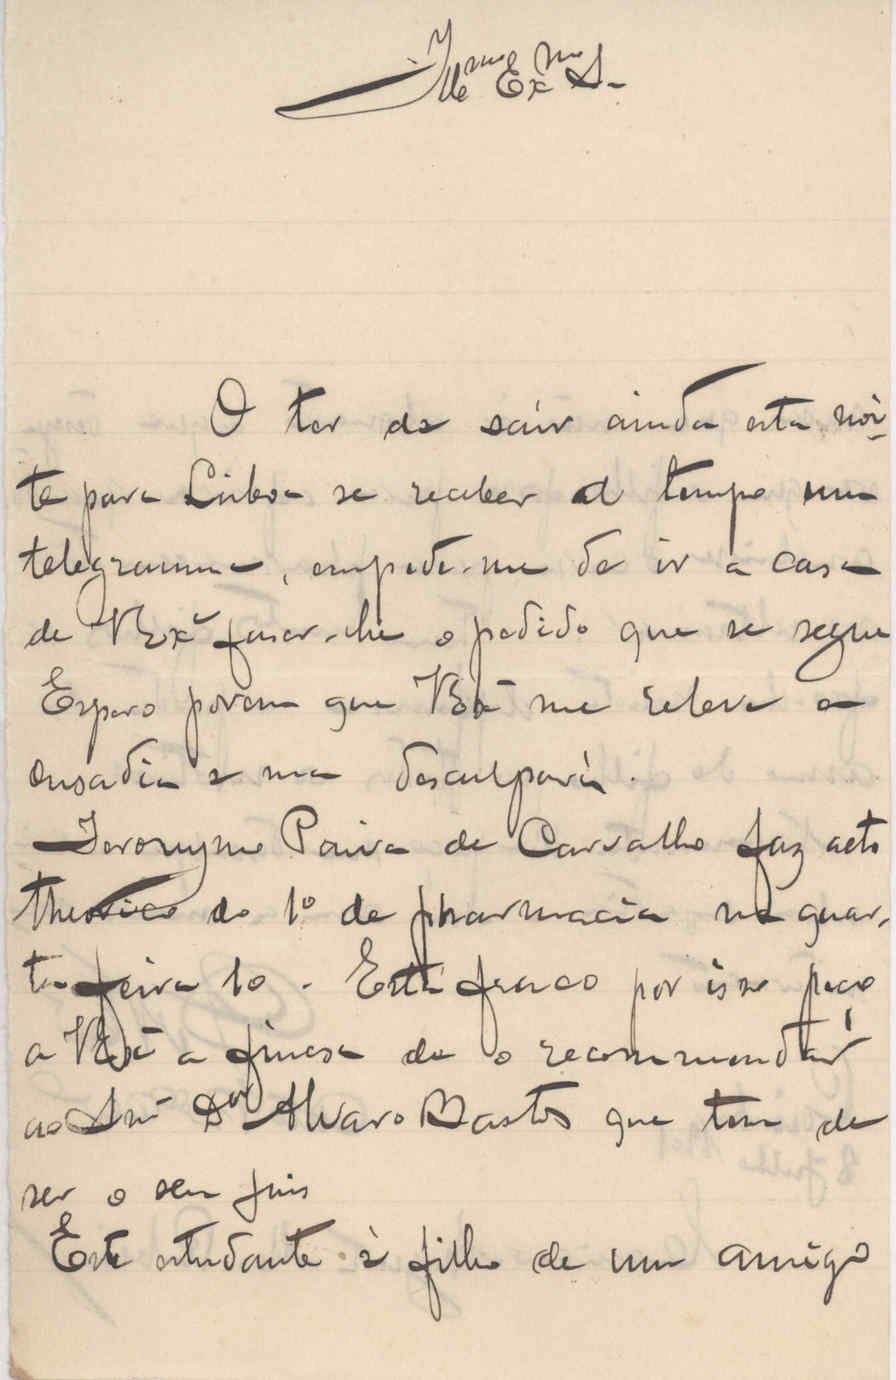 Illmo Exmo Sr
O ter de saír ainda esta noi-
te para Lisboa se receber a tempo um
telegramma, empede-me de ir a casa
de V Exª faser-lhe o pedido que se segue
Espero porem que V Exª me releve a
ousadia e me desculpará.
Jeronymo Paiva de Carvalho faz acto
theorico do 1º de pharmacia na quar-
ta feira 10. Está fraco por isso peço
a V Exª a finesa de o recommendar
ao Snr Dor Alvaro Bastos que tem de
ser o seu juis
Este estudante é filho de um amigo